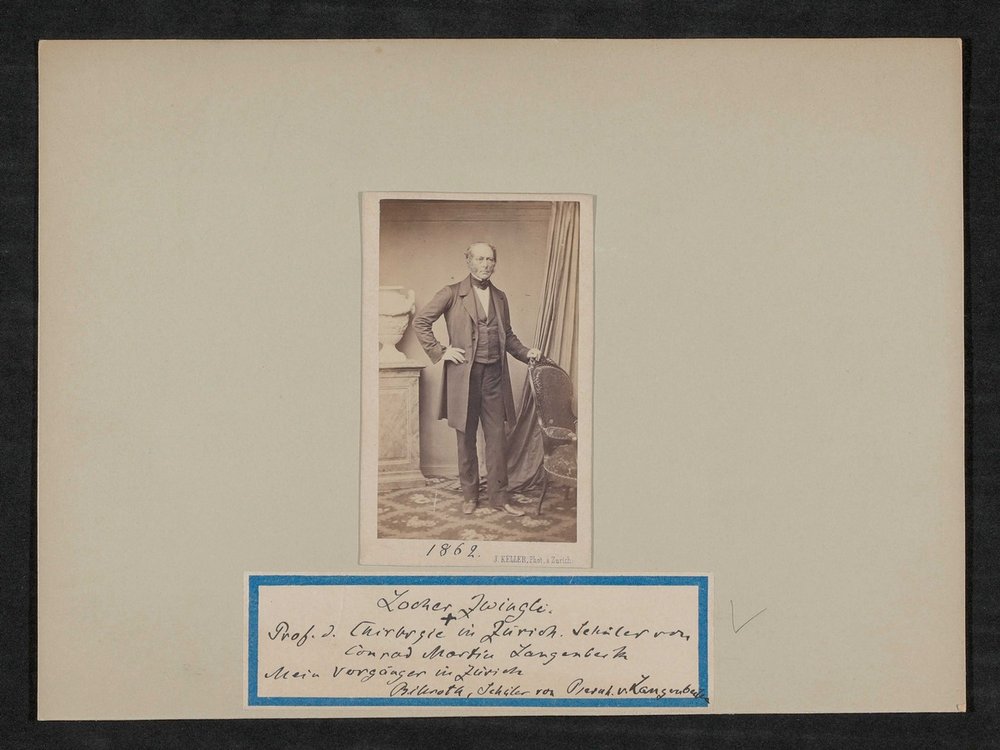 1862.
J. KELLER, Phot. à Zurich
Locher Zwingli.
+
Prof. d. Chirurgie in Zürich. Schüler von
Conrad Martin Langenbeck
Mein Vorgänger in Zürich
Billroth, Schüler von Bernh. v. Langenbeck